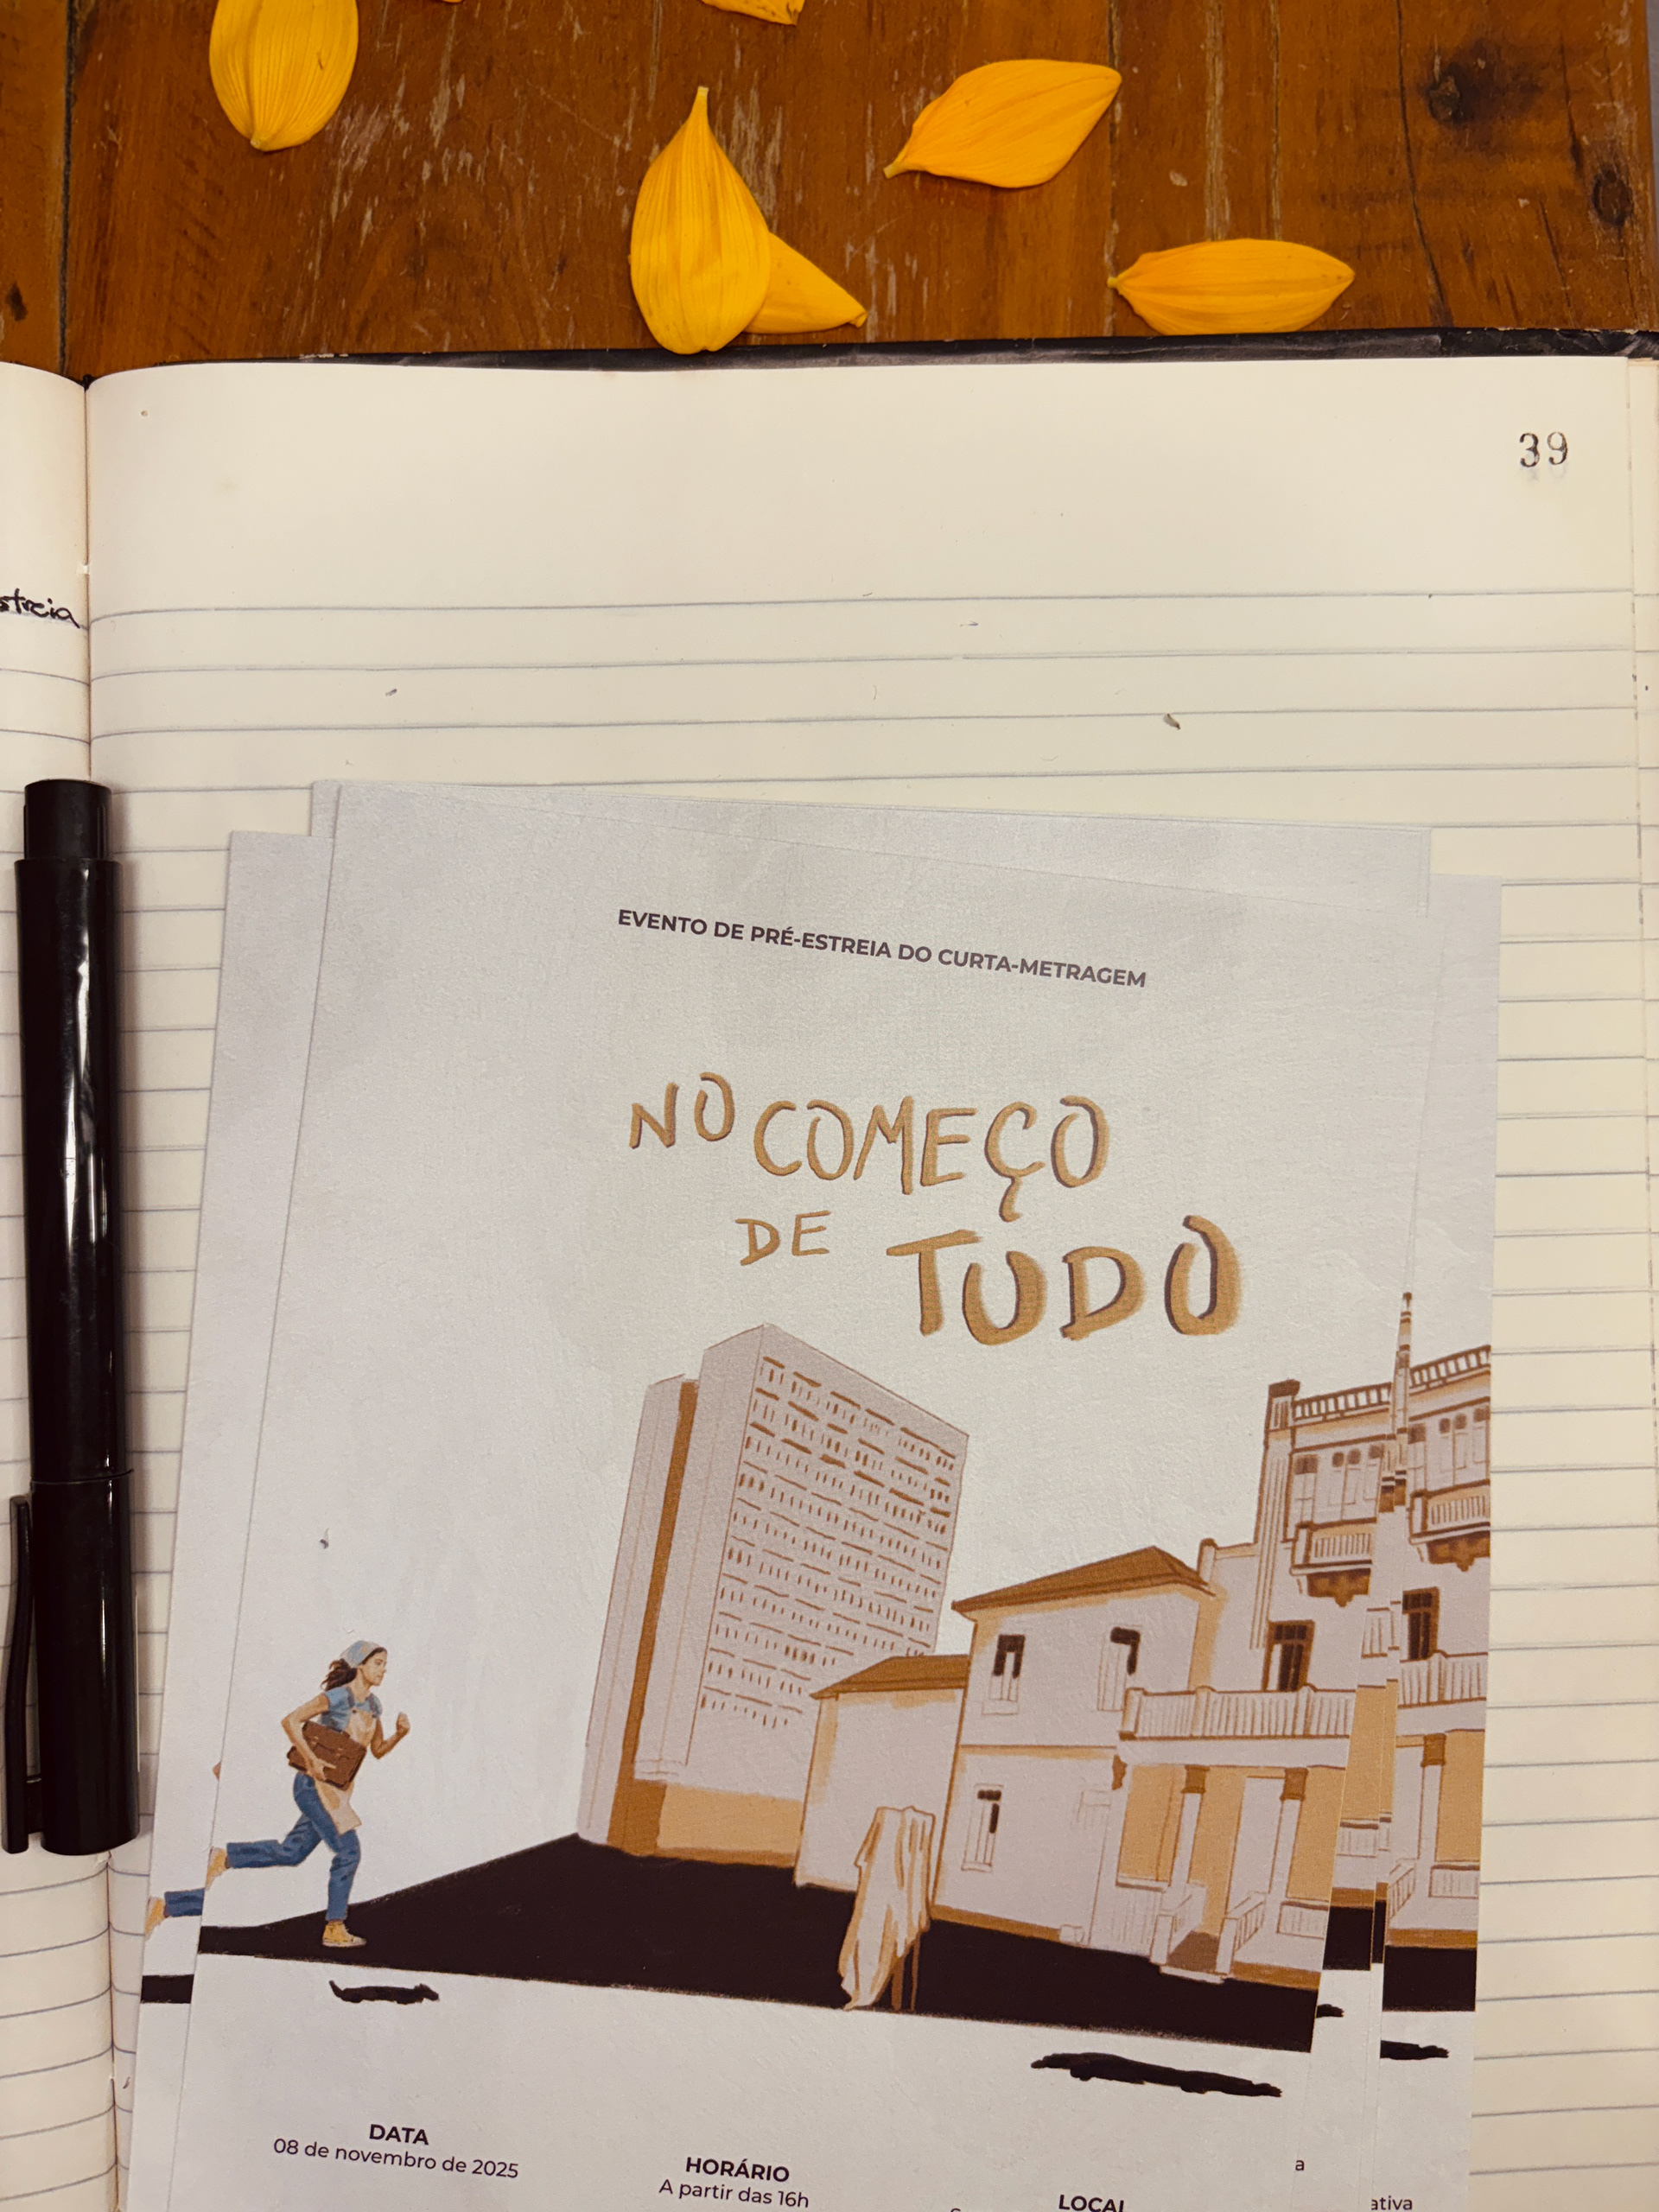 39
streia
EVENTO DE PRÉ-ESTREIA DO CURTA-METRAGEM
NO COMEÇO
DE TUDO
DATA
08 de novembro de 2025
HORÁRIO
A partir das 16h
LOCAL
a
ativa